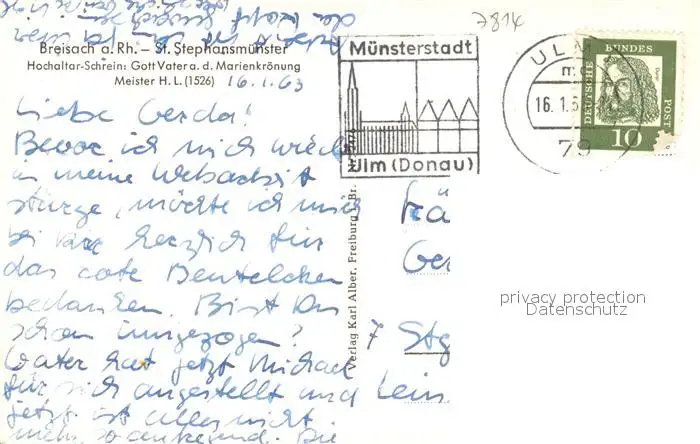 7814
Breisach a. Rh. – St. Stephansmünster
Hochaltar-Schrein: Gott Vater a. d. Marienkrönung
Meister H. L. (1526) 16.1.63
Liebe Gerda!
Bevor ich mich wieder
in meine Webarbeit
stürze, möchte ich mich
bei Dir herzlich für
das rote Beutelchen
bedanken. Bist Du
schon umgezogen?
Vater hat jetzt Michael
für sich angestellt und
jetzt ist alles nicht
mehr so anstrengend. Die
Verlag Karl Alber, Freiburg i. Br.
Münsterstadt
Ulm (Donau)
ULM
16.1.6
79
DEUTSCHE BUNDESPOST
10
Frä
Ger
7 Stg
privacy protection
Datenschutz